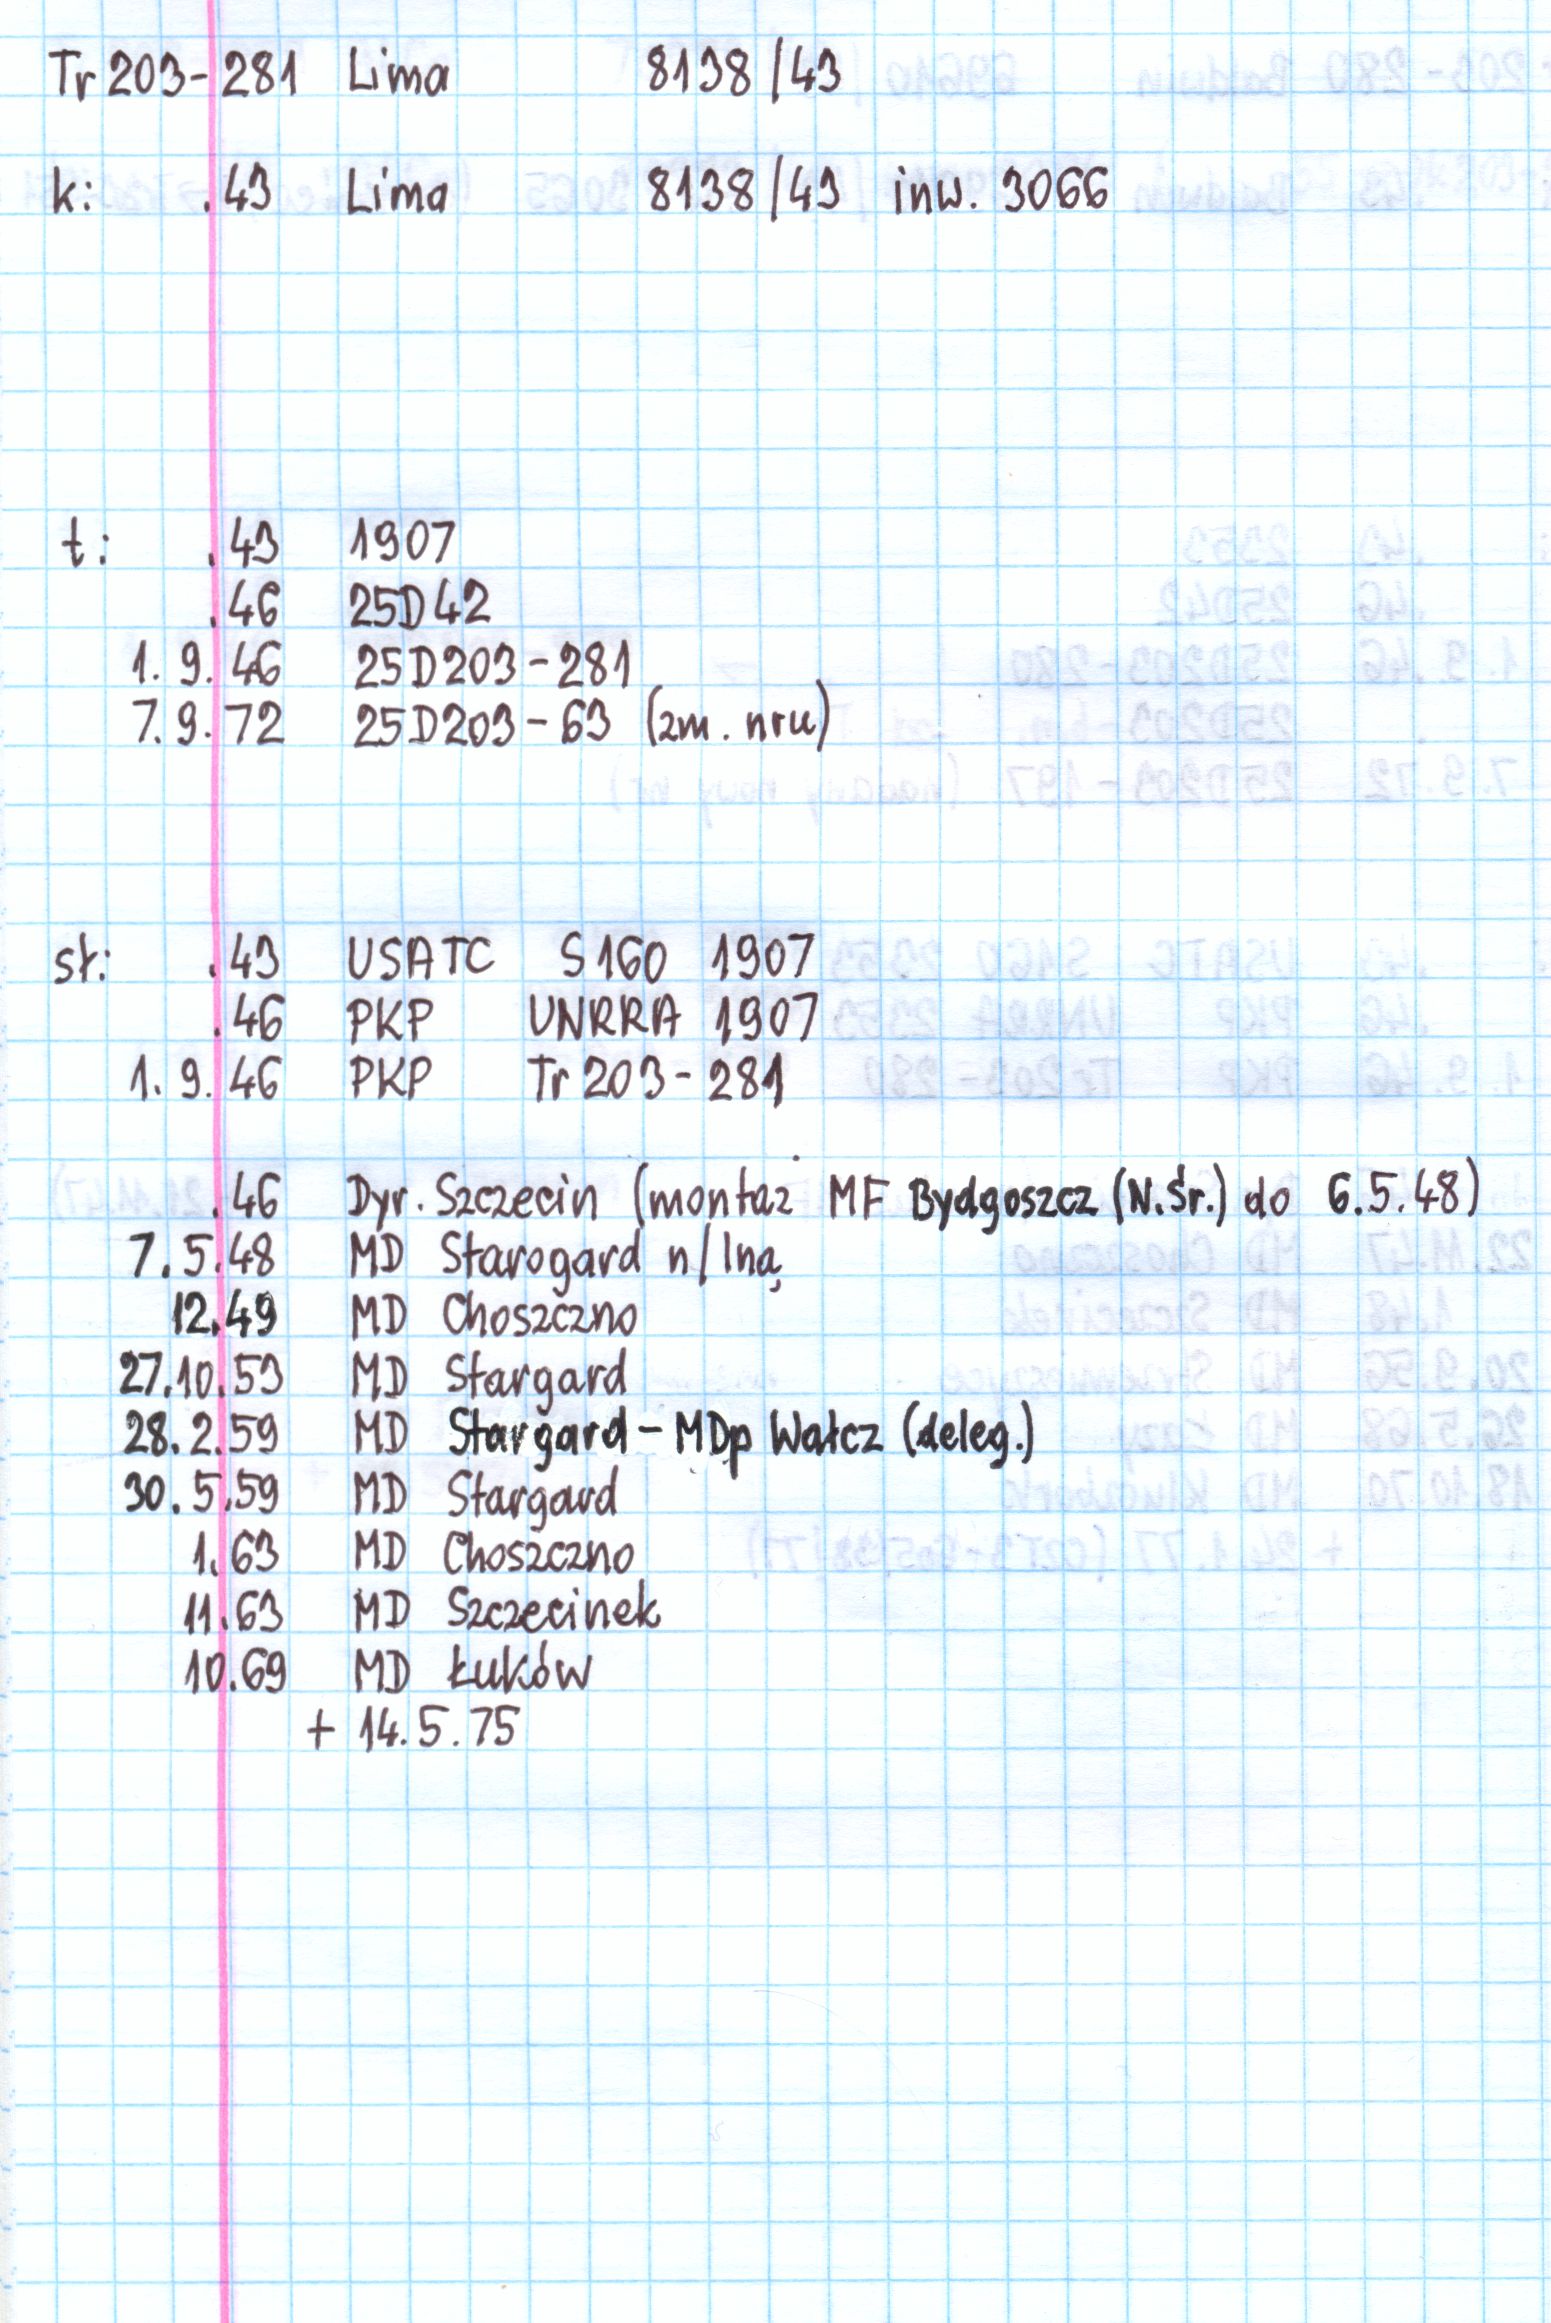 Tr 203-281 Lima 8138/43
k: .43 Lima 8138/43 inw. 3066
t: .43 1907
.46 25D42
1. 9. 46 25D203-281
7. 9. 72 25D203-63 (zm. nru)
sł: .43 USATC S160 1907
.46 PKP UNRRA 1907
1. 9. 46 PKP Tr 203-281
.46 Dyr. Szczecin (montaż MF Bydgoszcz (N.Śr.) do 6.5.48)
7. 5. 48 MD Starogard n/Iną
12.49 MD Choszczno
27.10.53 MD Stargard
28. 2. 59 MD Stargard - MDp Wałcz (deleg.)
30. 5. 59 MD Stargard
1. 63 MD Choszczno
11. 63 MD Szczecinek
10.69 MD Łuków
+ 14. 5. 75